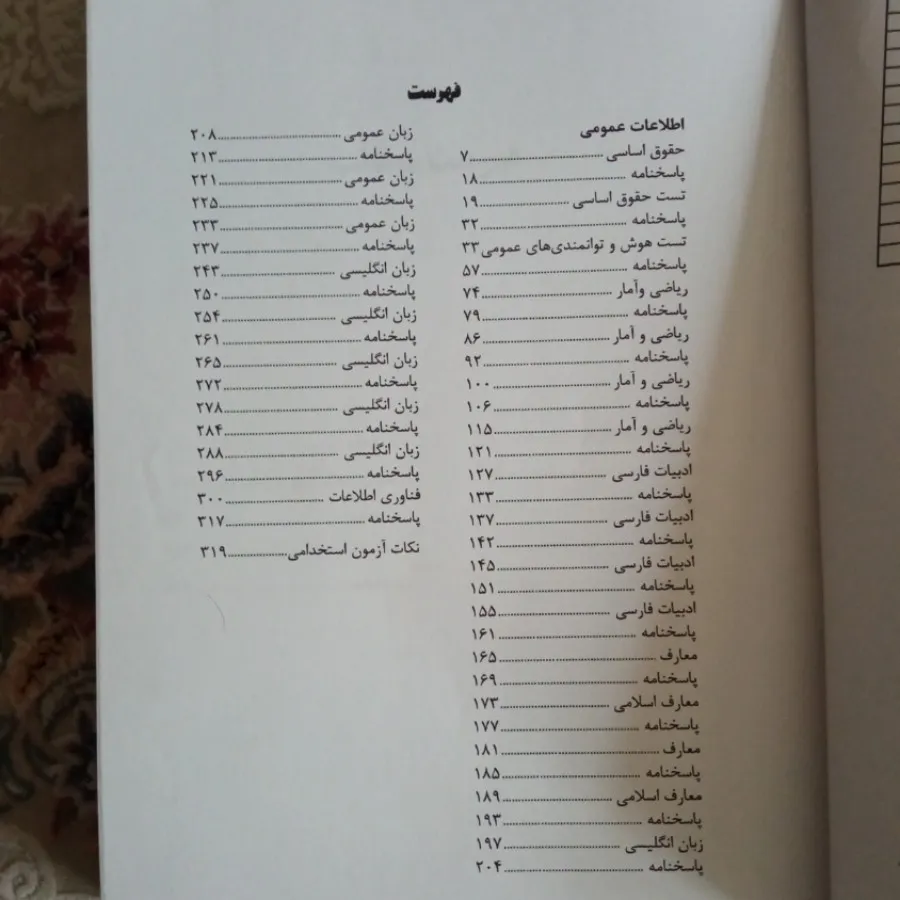 فهرست
اطلاعات عمومی
حقوق اساسی ........ ۷
پاسخنامه ........ ۱۸
تست حقوق اساسی ........ ۱۹
پاسخنامه ........ ۳۲
تست هوش و توانمندی‌های عمومی ۳۳
پاسخنامه ........ ۵۷
ریاضی وآمار ........ ۷۴
پاسخنامه ........ ۷۹
ریاضی و آمار ........ ۸۶
پاسخنامه ........ ۹۲
ریاضی و آمار ........ ۱۰۰
پاسخنامه ........ ۱۰۶
ریاضی و آمار ........ ۱۱۵
پاسخنامه ........ ۱۲۱
ادبیات فارسی ........ ۱۲۷
پاسخنامه ........ ۱۳۳
ادبیات فارسی ........ ۱۳۷
پاسخنامه ........ ۱۴۲
ادبیات فارسی ........ ۱۴۵
پاسخنامه ........ ۱۵۱
ادبیات فارسی ........ ۱۵۵
پاسخنامه ........ ۱۶۱
معارف ........ ۱۶۵
پاسخنامه ........ ۱۶۹
معارف اسلامی ........ ۱۷۳
پاسخنامه ........ ۱۷۷
معارف ........ ۱۸۱
پاسخنامه ........ ۱۸۵
معارف اسلامی ........ ۱۸۹
پاسخنامه ........ ۱۹۳
زبان انگلیسی ........ ۱۹۷
پاسخنامه ........ ۲۰۴
زبان عمومی ........ ۲۰۸
پاسخنامه ........ ۲۱۳
زبان عمومی ........ ۲۲۱
پاسخنامه ........ ۲۲۵
زبان عمومی ........ ۲۳۳
پاسخنامه ........ ۲۳۷
زبان انگلیسی ........ ۲۴۳
پاسخنامه ........ ۲۵۰
زبان انگلیسی ........ ۲۵۴
پاسخنامه ........ ۲۶۱
زبان انگلیسی ........ ۲۶۵
پاسخنامه ........ ۲۷۲
زبان انگلیسی ........ ۲۷۸
پاسخنامه ........ ۲۸۴
زبان انگلیسی ........ ۲۸۸
پاسخنامه ........ ۲۹۶
فناوری اطلاعات ........ ۳۰۰
پاسخنامه ........ ۳۱۷
نکات آزمون استخدامی ........ ۳۱۹